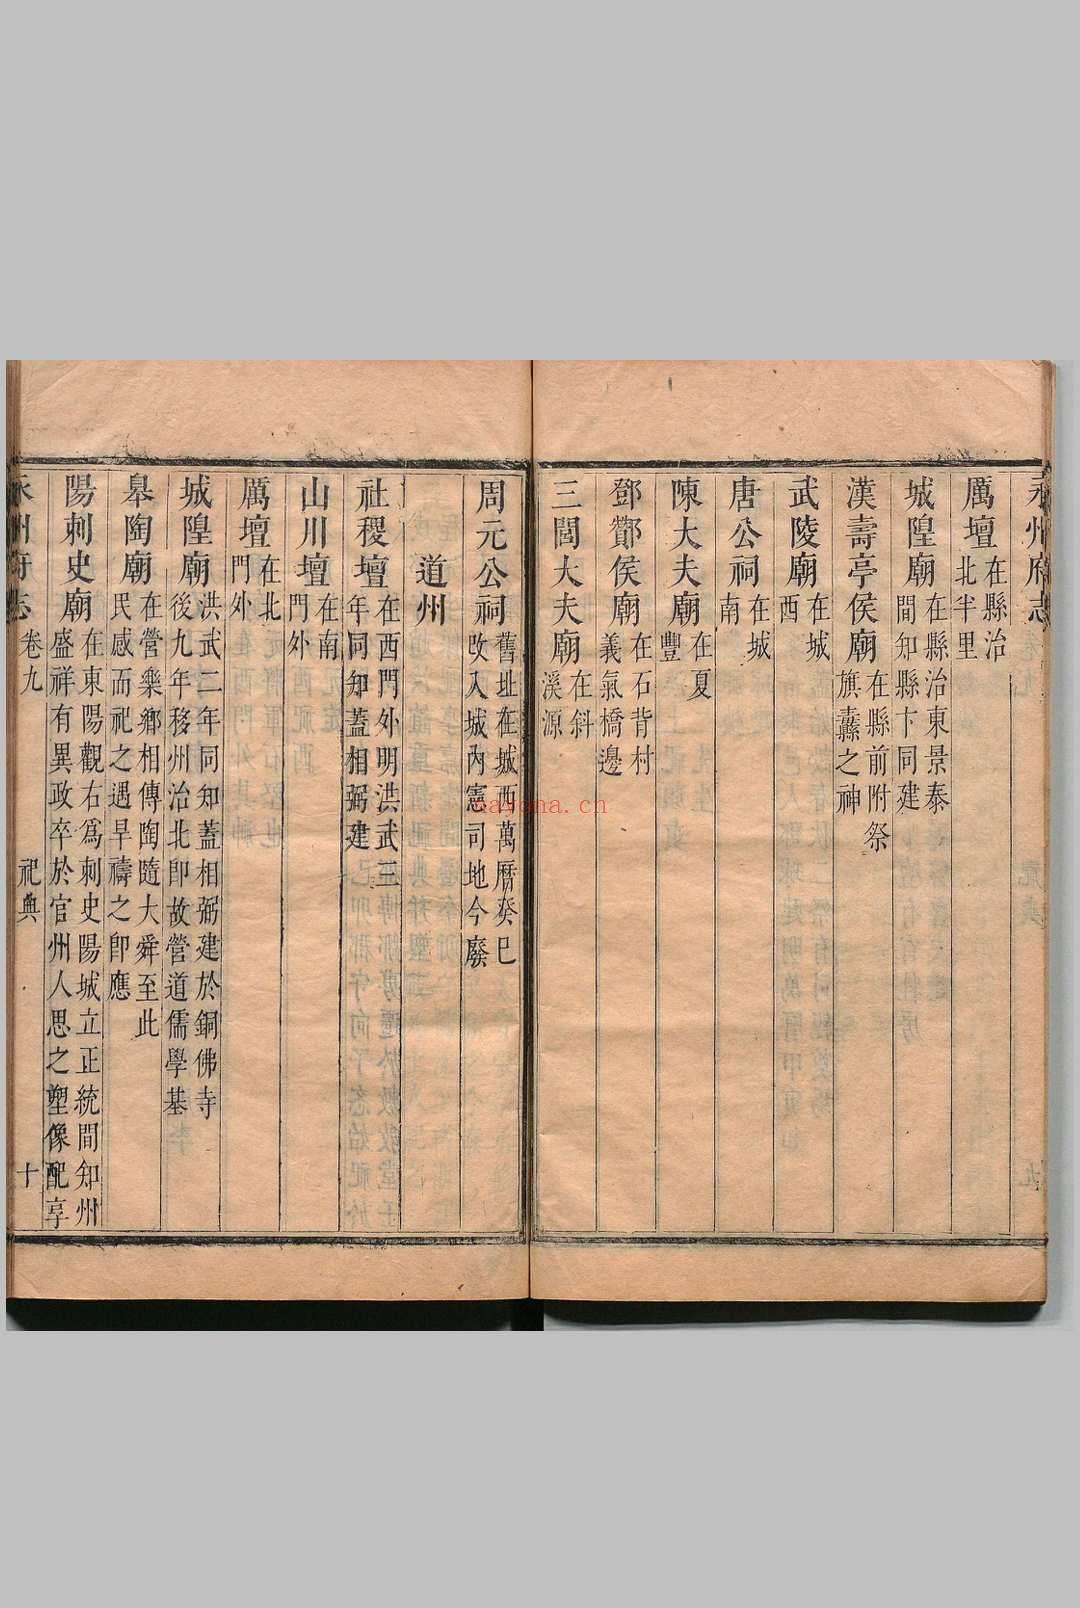 永州府志
厲壇在縣治北半里
城隍廟在縣治東景泰間知縣卞同建
漢壽亭侯廟在縣前附祭旗纛之神
武陵廟在城西
唐公祠在城南
陳大夫廟在夏豐
鄧酇侯廟在石背村義氣橋邊
三閭大夫廟在斜溪源
周元公祠舊址在城西萬曆癸巳改入城內憲司地今廢
道州
社稷壇在西門外明洪武三年同知蓋相弼建
山川壇在南門外
厲壇在北門外
城隍廟洪武二年同知蓋相弼建於銅佛寺後九年移州治北卽故營道儒學基
皋陶廟在營樂鄉相傳陶隨大舜至此民感而祀之遇旱禱之卽應
陽刺史廟在東陽觀右爲刺史陽城立正統間知州盛祥有異政卒於官州人思之塑像配享
永州府志 卷九 祀典 十
nayona.cn